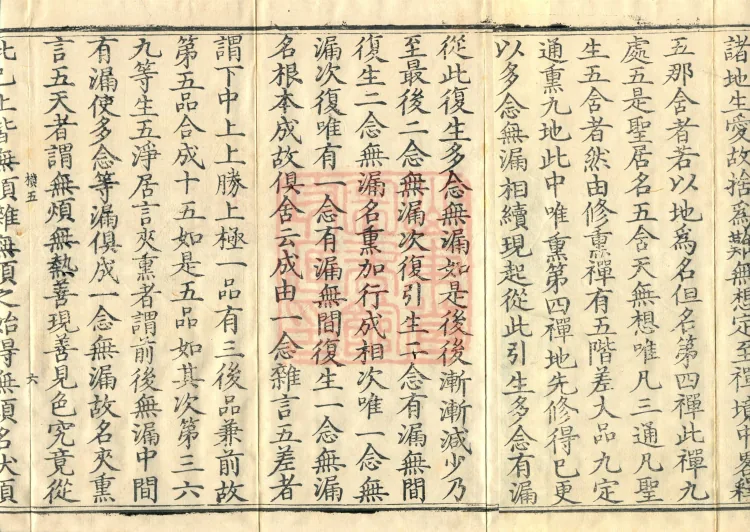 諸地生愛故捨爲難無想定至禪境中畧釋
五那舍者若以地爲名但名第四禪此禪九
處五是聖居名五舍天無想唯凡三通凡聖
生五舍者然由修熏禪有五階差大品九定
通熏九地此中唯熏第四禪地先修得已更
以多念無漏相續現起從此引生多念有漏
從此復生多念無漏如是後後漸漸減少乃
至最後二念無漏次復引生二念有漏無間
復生二念無漏名熏加行成相次唯一念無
漏次復唯有一念有漏無間復生一念無漏
名根本成故俱舍云成由一念雜言五差者
謂下中上上勝上極一品有三後品兼前故
第五品合成十五如是五品如其次第三六
九等生五淨居言夾熏者謂前後無漏中間
有漏使多念等漏俱成一念無漏故名夾熏
言五天者謂無煩無熱善現善見色究竟從
橫五
六
此已上皆無煩雜無煩之始得無煩名火煩